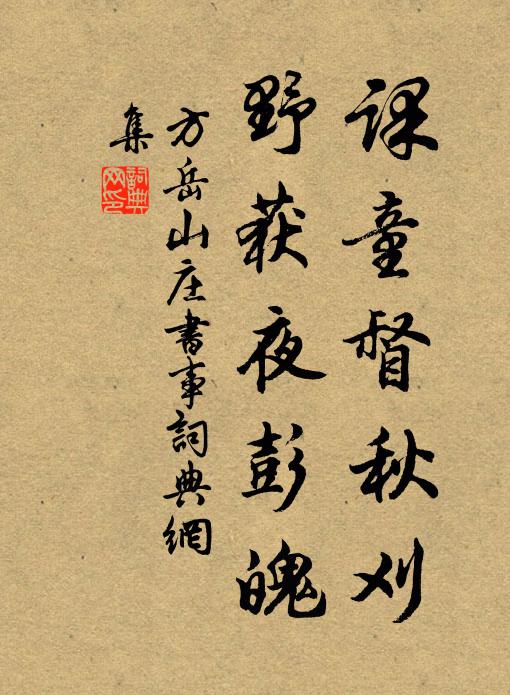 课童督秋刈
野获夜彭魄
方岳山庄書事詞典網
集
詞典网印